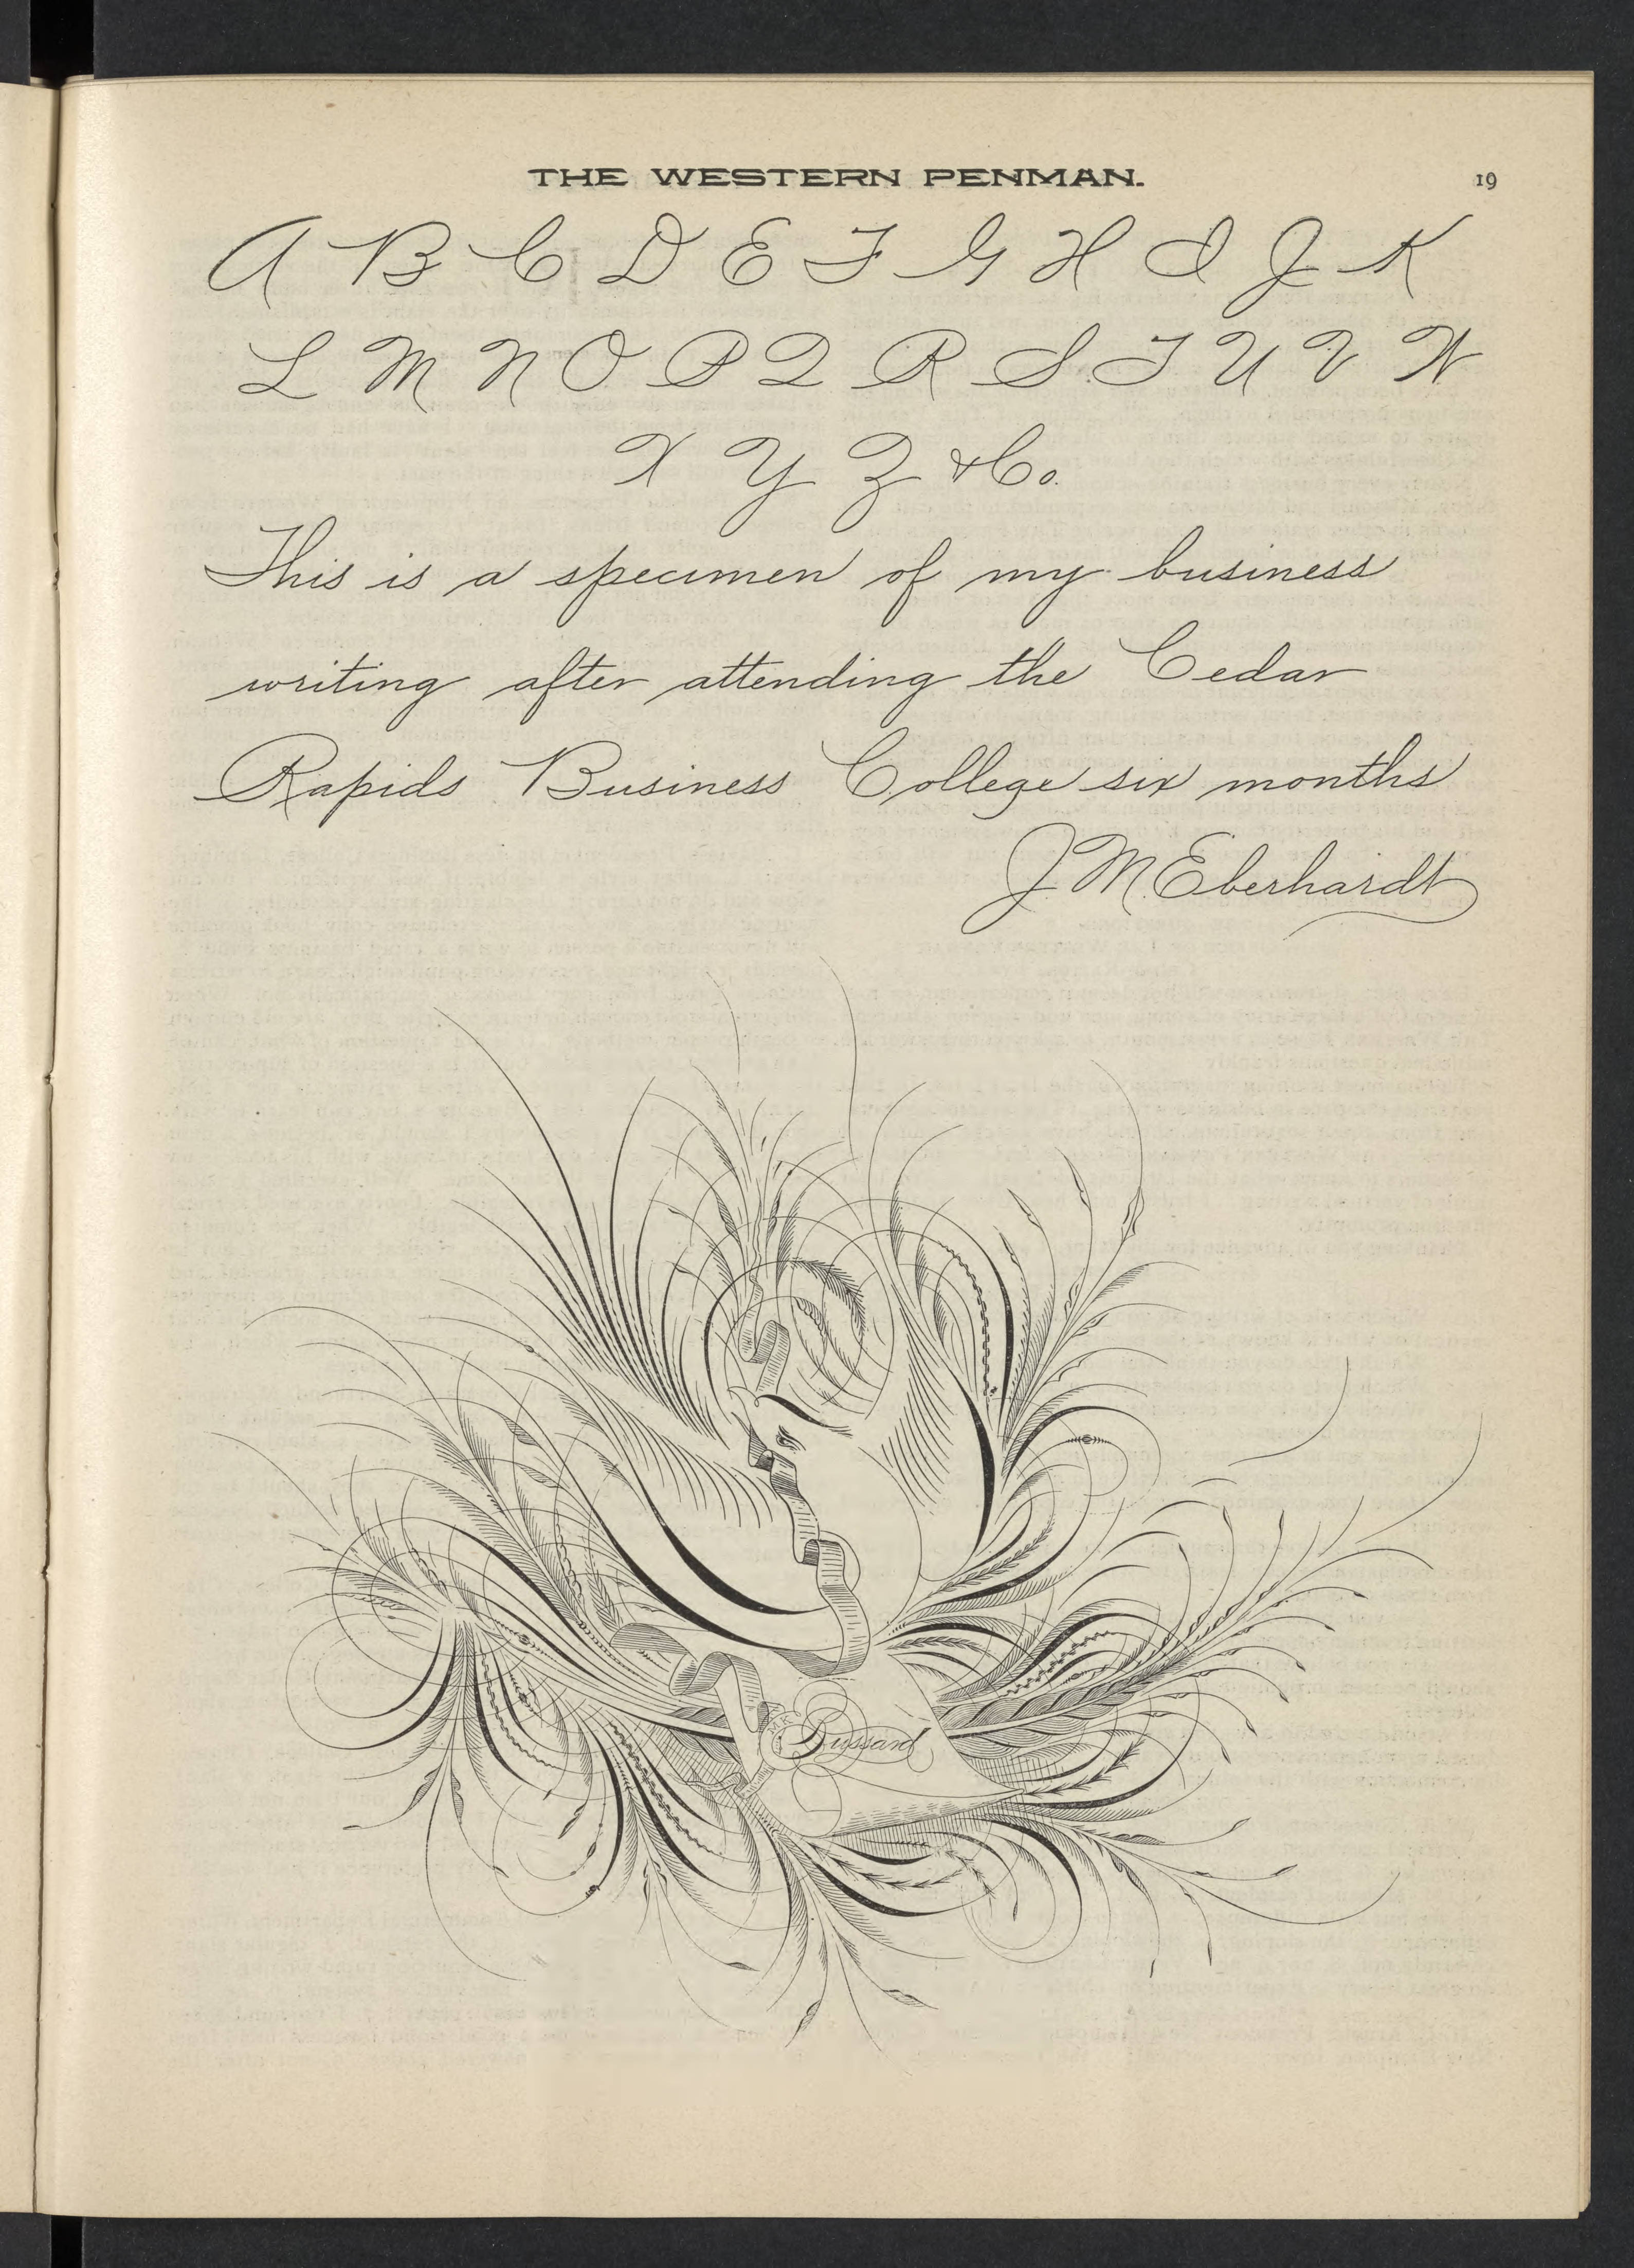 THE WESTERN PENMAN.
19
A B C D E F G H I J K
L M N O P Q R S T U V W
X Y Z & Co.
This is a specimen of my business
writing after attending the Cedar
Rapids Business College six months
J. M. Eberhardt
Bussard